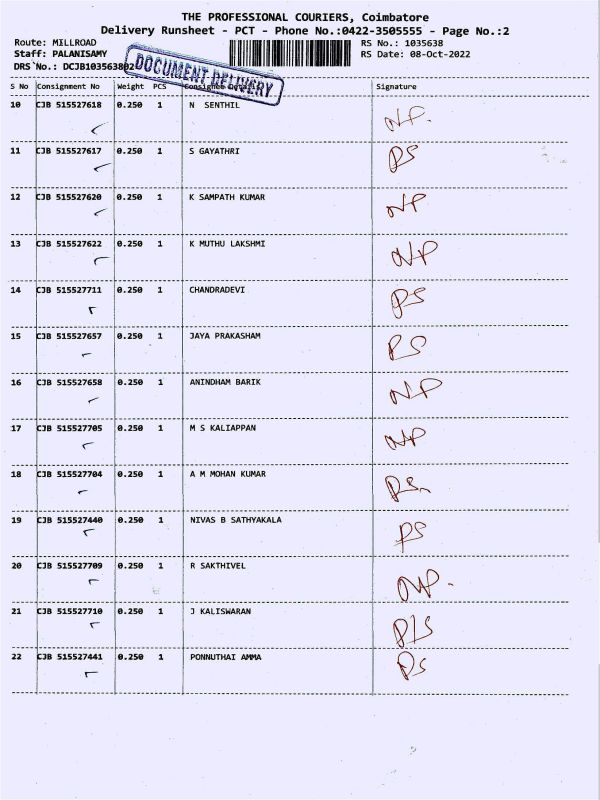 THE PROFESSIONAL COURIERS, Coimbatore
Delivery Runsheet - PCT - Phone No.:0422-3505555 - Page No.:2
Route: MILLROAD RS No.: 1035638
Staff: PALANISAMY RS Date: 08-Oct-2022
DRS No.: DCJB103563802
DOCUMENT DELIVERY
S No Consignment No Weight PCS Consignee Details Signature
10 CJB 515527618 0.250 1 N SENTHIL NP.
11 CJB 515527617 0.250 1 S GAYATHRI PS
12 CJB 515527620 0.250 1 K SAMPATH KUMAR NP
13 CJB 515527622 0.250 1 K MUTHU LAKSHMI NP
14 CJB 515527711 0.250 1 CHANDRADEVI PS
15 CJB 515527657 0.250 1 JAYA PRAKASHAM PS
16 CJB 515527658 0.250 1 ANINDHAM BARIK NP
17 CJB 515527705 0.250 1 M S KALIAPPAN NP
18 CJB 515527704 0.250 1 A M MOHAN KUMAR PS
19 CJB 515527440 0.250 1 NIVAS B SATHYAKALA PS
20 CJB 515527709 0.250 1 R SAKTHIVEL NP.
21 CJB 515527710 0.250 1 J KALISWARAN P/S
22 CJB 515527441 0.250 1 PONNUTHAI AMMA PS